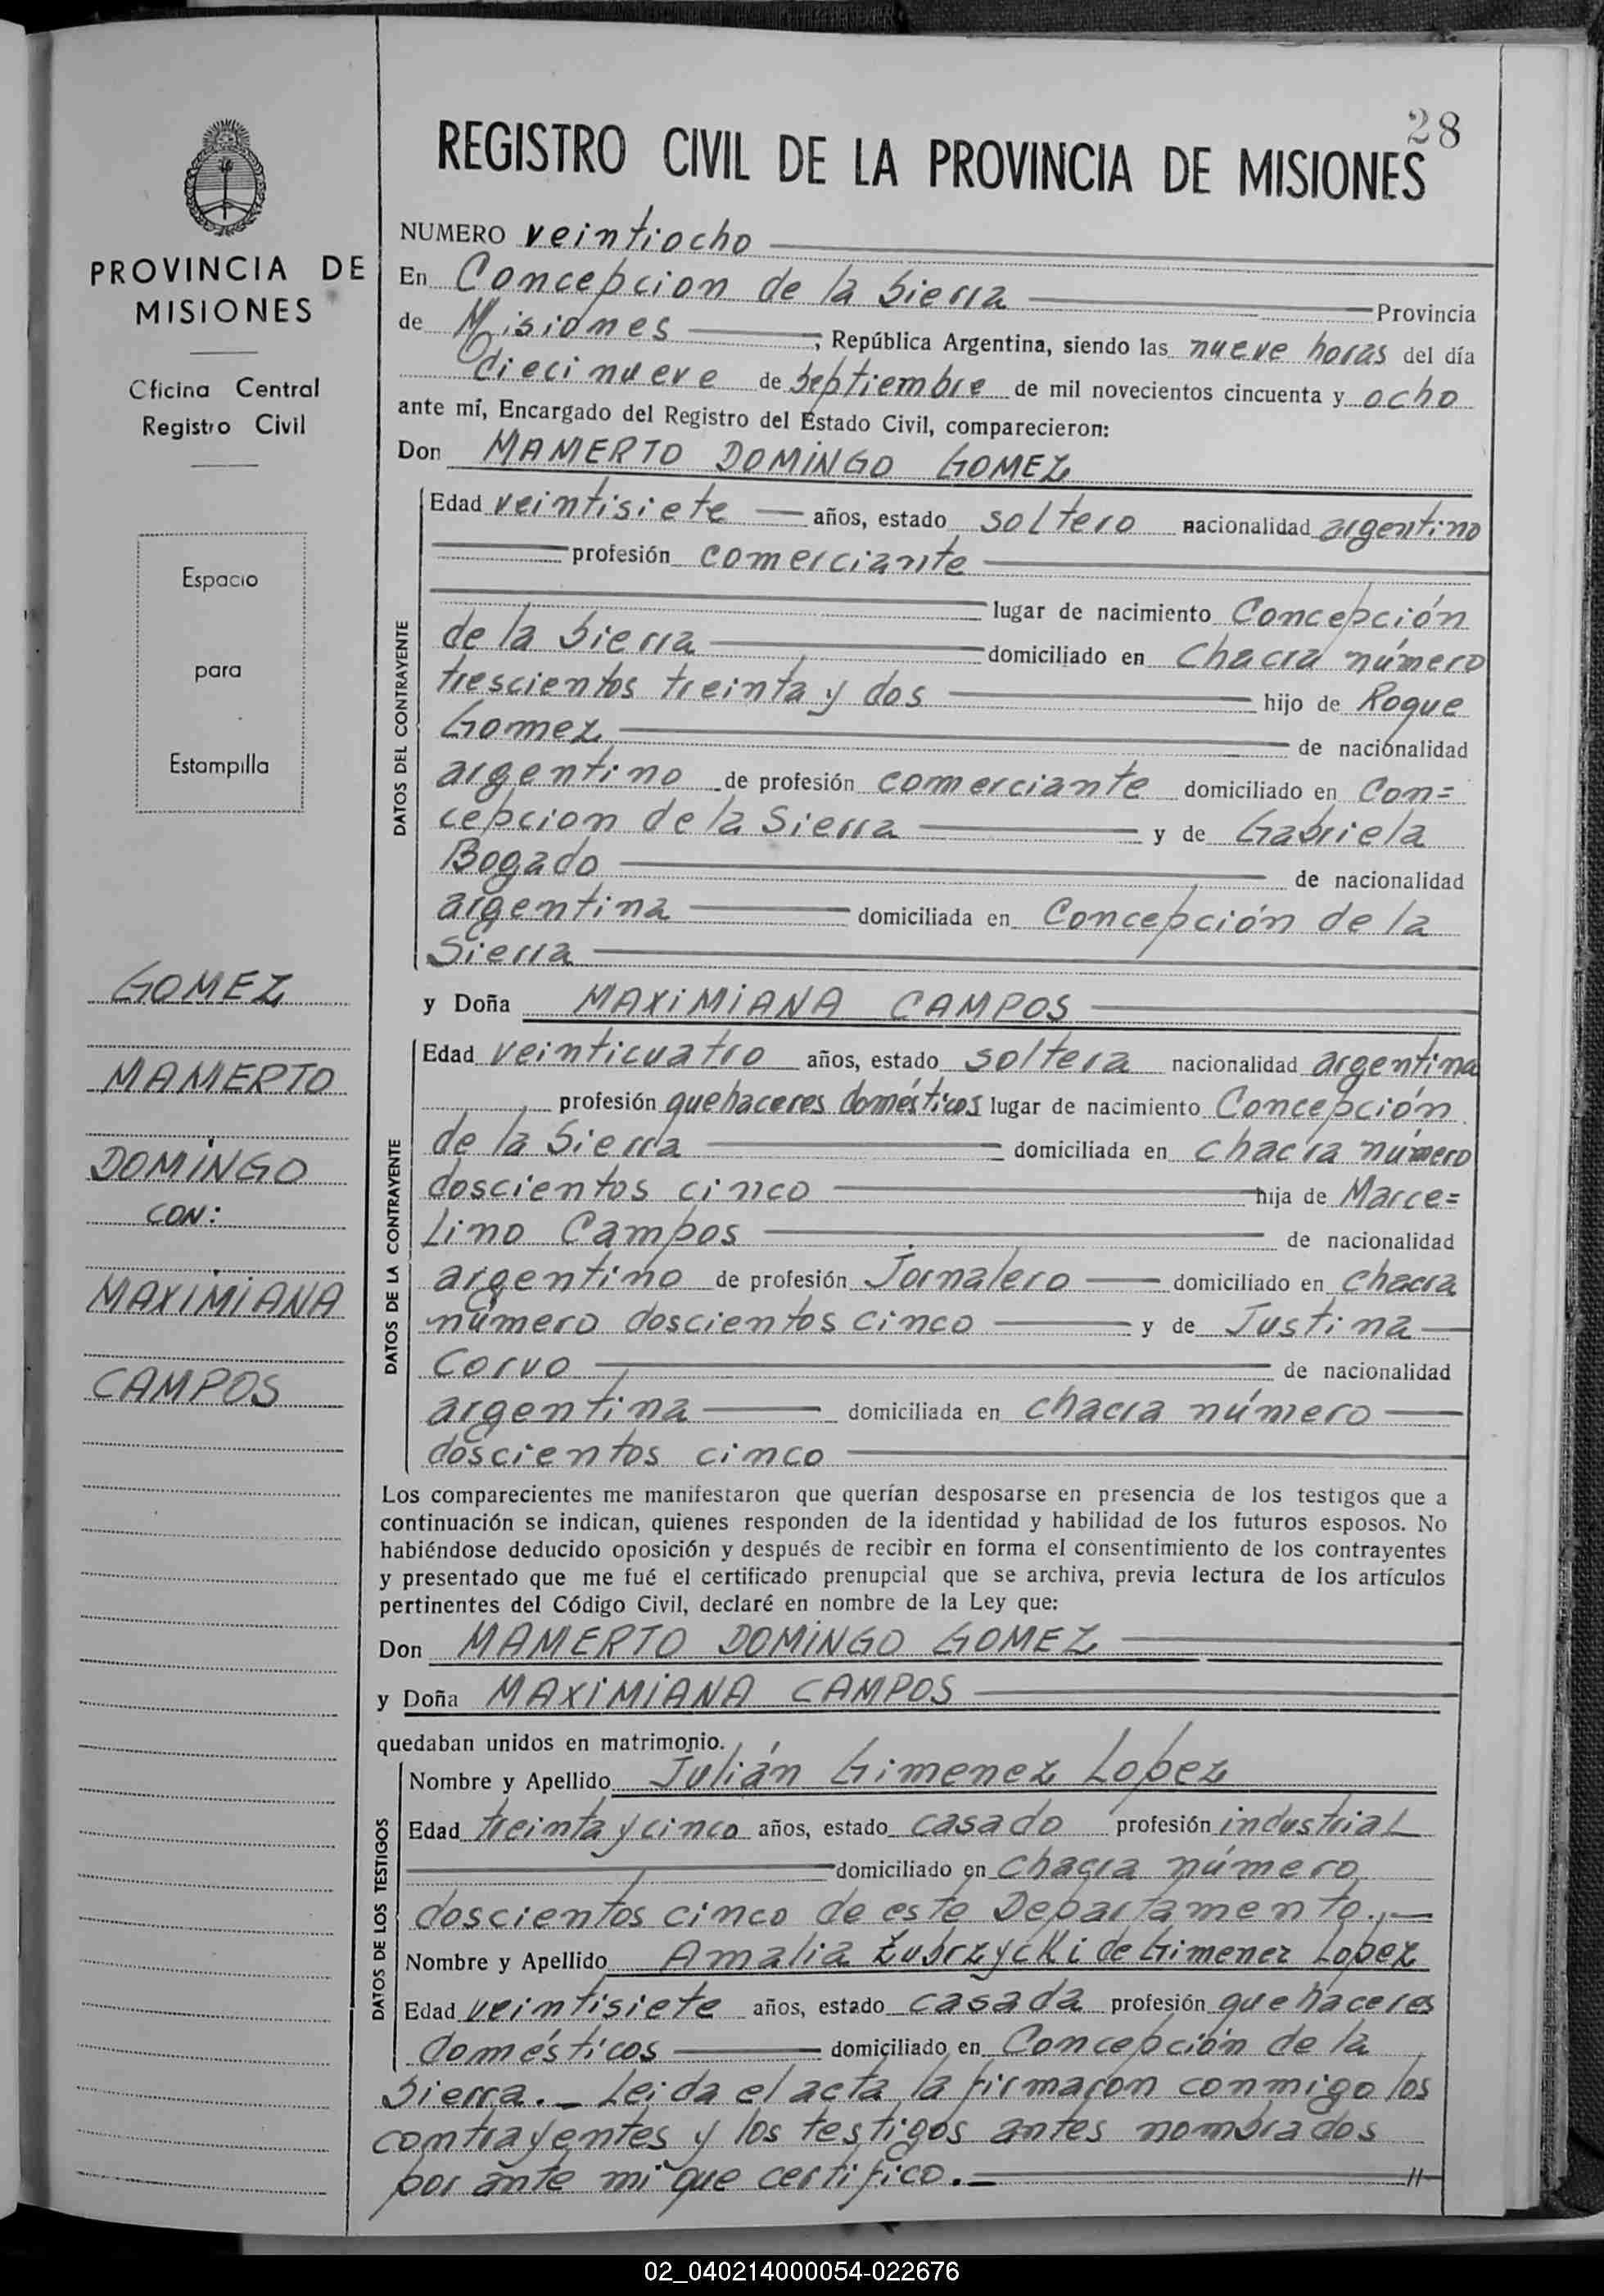 28
REGISTRO CIVIL DE LA PROVINCIA DE MISIONES
PROVINCIA DE
MISIONES
Oficina Central
Registro Civil
Espacio
para
Estampilla
GOMEZ
MAMERTO
DOMINGO
CON:
MAXIMIANA
CAMPOS
NUMERO veintiocho
En Concepcion de la Sierra Provincia
de Misiones, República Argentina, siendo las nueve horas del día
diecinueve de Septiembre de mil novecientos cincuenta y ocho
ante mí, Encargado del Registro del Estado Civil, comparecieron:
Don MAMERTO DOMINGO GOMEZ
DATOS DEL CONTRAYENTE
Edad veintisiete años, estado soltero nacionalidad argentino
profesión comerciante
lugar de nacimiento Concepción
de la Sierra domiciliado en Chacra número
trescientos treinta y dos hijo de Roque
Gomez de nacionalidad
argentino de profesión comerciante domiciliado en Con=
cepcion de la Sierra y de Gabriela
Bogado de nacionalidad
argentina domiciliada en Concepción de la
Sierra
y Doña MAXIMIANA CAMPOS
DATOS DE LA CONTRAYENTE
Edad veinticuatro años, estado soltera nacionalidad argentina
profesión quehaceres domésticos lugar de nacimiento Concepción
de la Sierra domiciliada en chacra número
doscientos cinco hija de Marce=
lino Campos de nacionalidad
argentino de profesión Jornalero domiciliado en chacra
número doscientos cinco y de Justina
Corvo de nacionalidad
argentina domiciliada en chacra número
doscientos cinco
Los comparecientes me manifestaron que querían desposarse en presencia de los testigos que a
continuación se indican, quienes responden de la identidad y habilidad de los futuros esposos. No
habiéndose deducido oposición y después de recibir en forma el consentimiento de los contrayentes
y presentado que me fué el certificado prenupcial que se archiva, previa lectura de los artículos
pertinentes del Código Civil, declaré en nombre de la Ley que:
Don MAMERTO DOMINGO GOMEZ
y Doña MAXIMIANA CAMPOS
quedaban unidos en matrimonio.
DATOS DE LOS TESTIGOS
Nombre y Apellido Julián Gimenez Lopez
Edad treinta y cinco años, estado casado profesión industrial
domiciliado en chacra número
doscientos cinco de este Departamento.-
Nombre y Apellido Amalia Zubrzycki de Gimenez Lopez
Edad veintisiete años, estado casada profesión quehaceres
domésticos domiciliado en Concepción de la
Sierra.- Leida el acta la firmaron conmigo los
contrayentes y los testigos antes nombrados
por ante mi que certifico.-
02_040214000054-022676